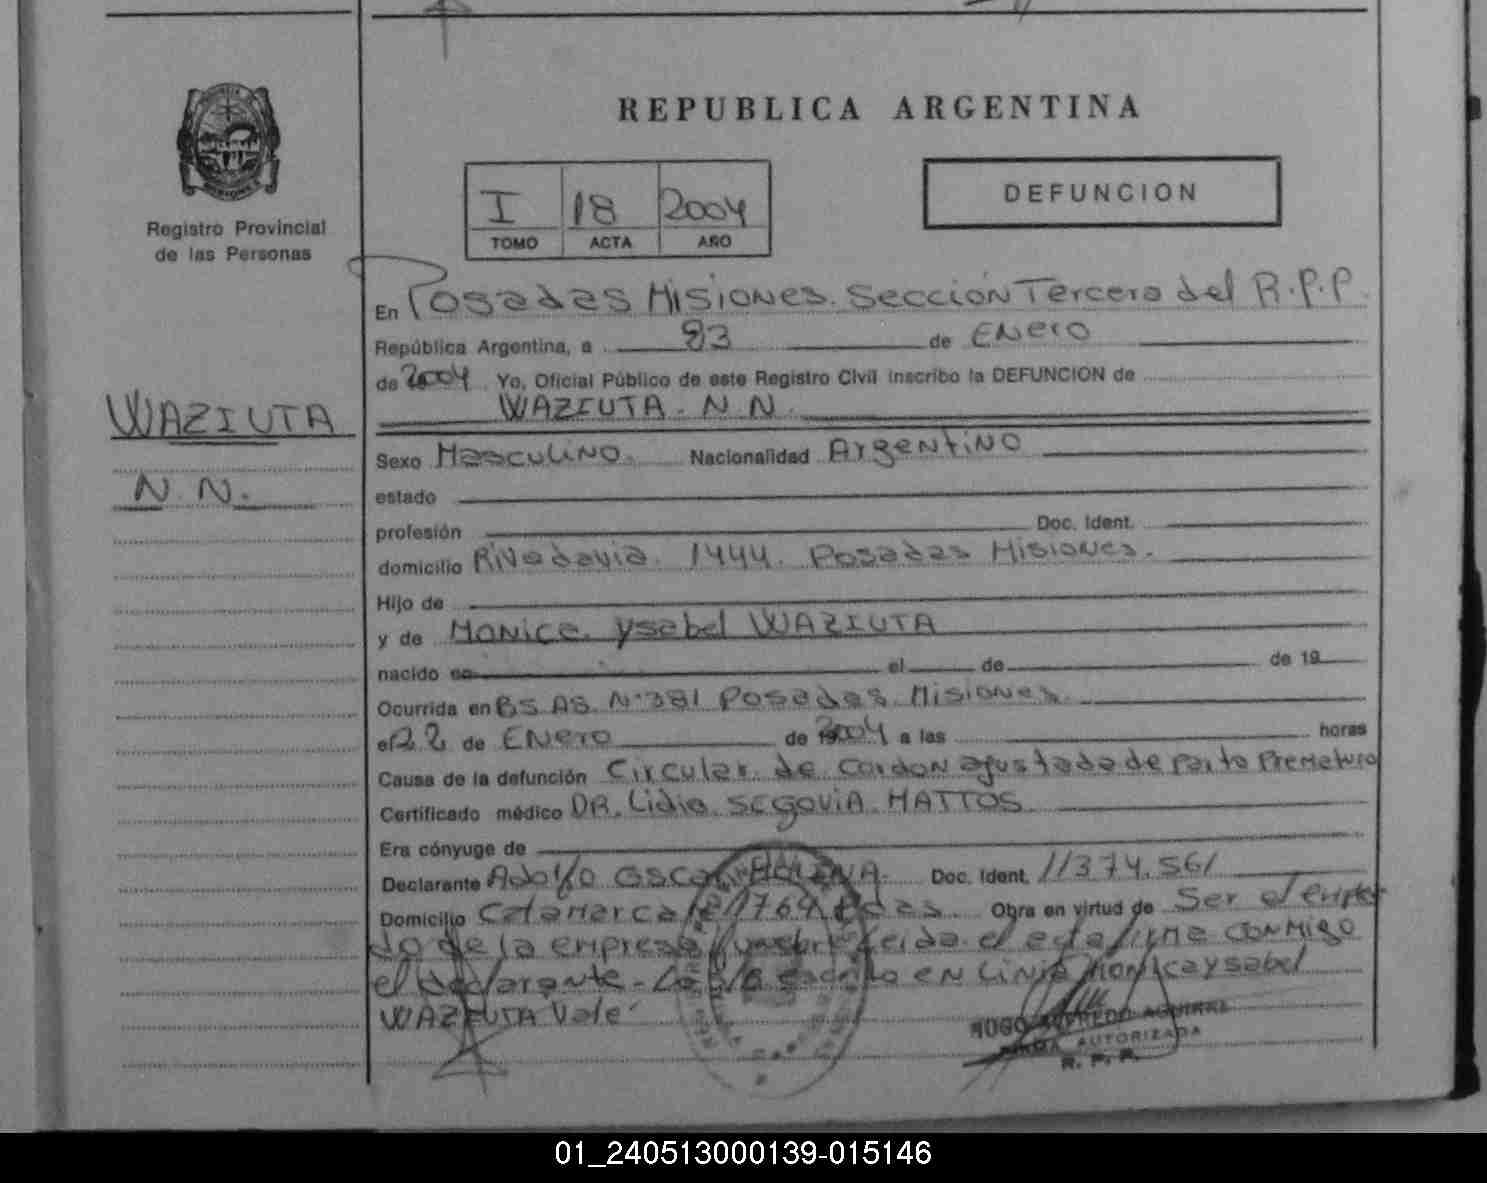 REPUBLICA ARGENTINA
Registro Provincial
de las Personas
I 18 2004
TOMO ACTA AÑO
DEFUNCION
En Posadas Misiones. Sección Tercera del R.P.P.
República Argentina, a 23 de Enero
de 2004 Yo, Oficial Público de este Registro Civil inscribo la DEFUNCION de
WAZIUTA. N.N.
WAZIUTA
N. N.
Sexo Masculino. Nacionalidad Argentino
estado
profesión Doc. Ident.
domicilio Rivadavia. 1444. Posadas Misiones.
Hijo de
y de Monica. Ysabel WAZIUTA
nacido en el de de 19
Ocurrida en BS. AS. N°381 Posadas. Misiones.
el 22 de Enero de 2004 a las horas
Causa de la defunción Circular. de Cordon ajustada de parto Prematuro
Certificado médico DR. Lidia. Segovia. MATTOS
Era cónyuge de
Declarante Adolfo Oscar Doc. Ident. 11374.561
Domicilio Catamarca 1769 Pdas. Obra en virtud de Ser el emplea
do de la empresa leida. el acta firma conmigo
el declarante. en Linia Monica Ysabel
WAZIUTA Vale
HUGO ALFREDO AGUIRRE
FIRMA AUTORIZADA
R. P. P.
01_240513000139-015146